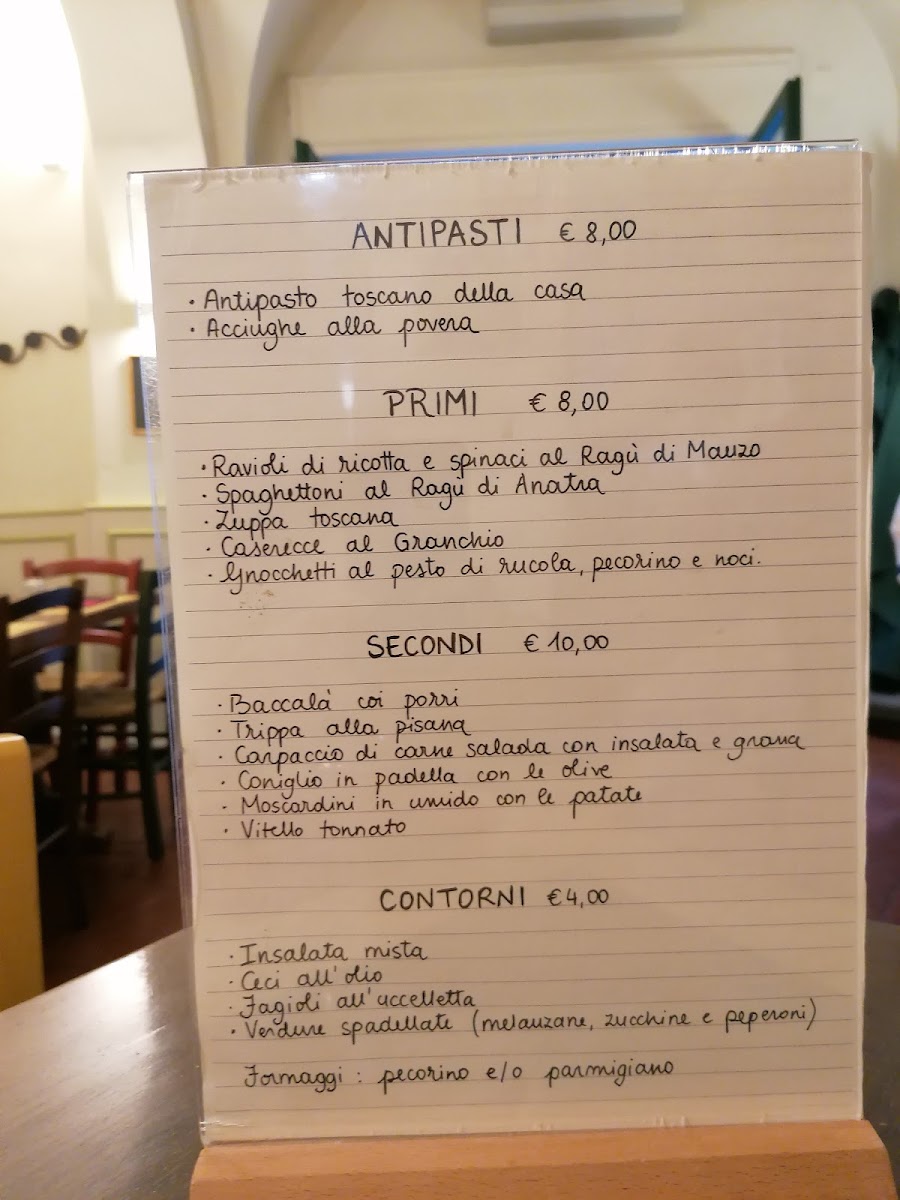 ANTIPASTI € 8,00
· Antipasto toscano della casa
· Acciughe alla povera
PRIMI € 8,00
· Ravioli di ricotta e spinaci al Ragù di Manzo
· Spaghettoni al Ragù di Anatra
· Zuppa toscana
· Caserecce al Granchio
· Gnocchetti al pesto di rucola, pecorino e noci.
SECONDI € 10,00
· Baccalà coi porri
· Trippa alla pisana
· Carpaccio di carne salada con insalata e grana
· Coniglio in padella con le olive
· Moscardini in umido con le patate
· Vitello tonnato
CONTORNI € 4,00
· Insalata mista
· Ceci all'olio
· Fagioli all'uccelletta
· Verdure spadellate (melanzane, zucchine e peperoni)
Formaggi : pecorino e/o parmigiano